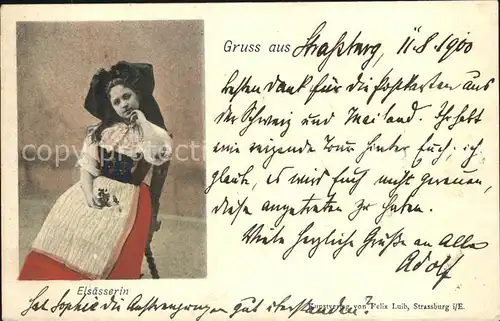 Gruss aus Straßburg, 11.8.1900
besten Dank für die Postkarten aus
der Schweiz und Mailand. Ihr habt
eine reizende Tour hinter Euch; ich
glaube, es wird Euch nicht gereuen,
diese angetreten zu haben.
Viele herzliche Grüße an Alle
Adolf
Elsässerin
Kunstverlag von Felix Luib, Strassburg i/E.
Hat Sophie die Anstrengungen gut überstanden?